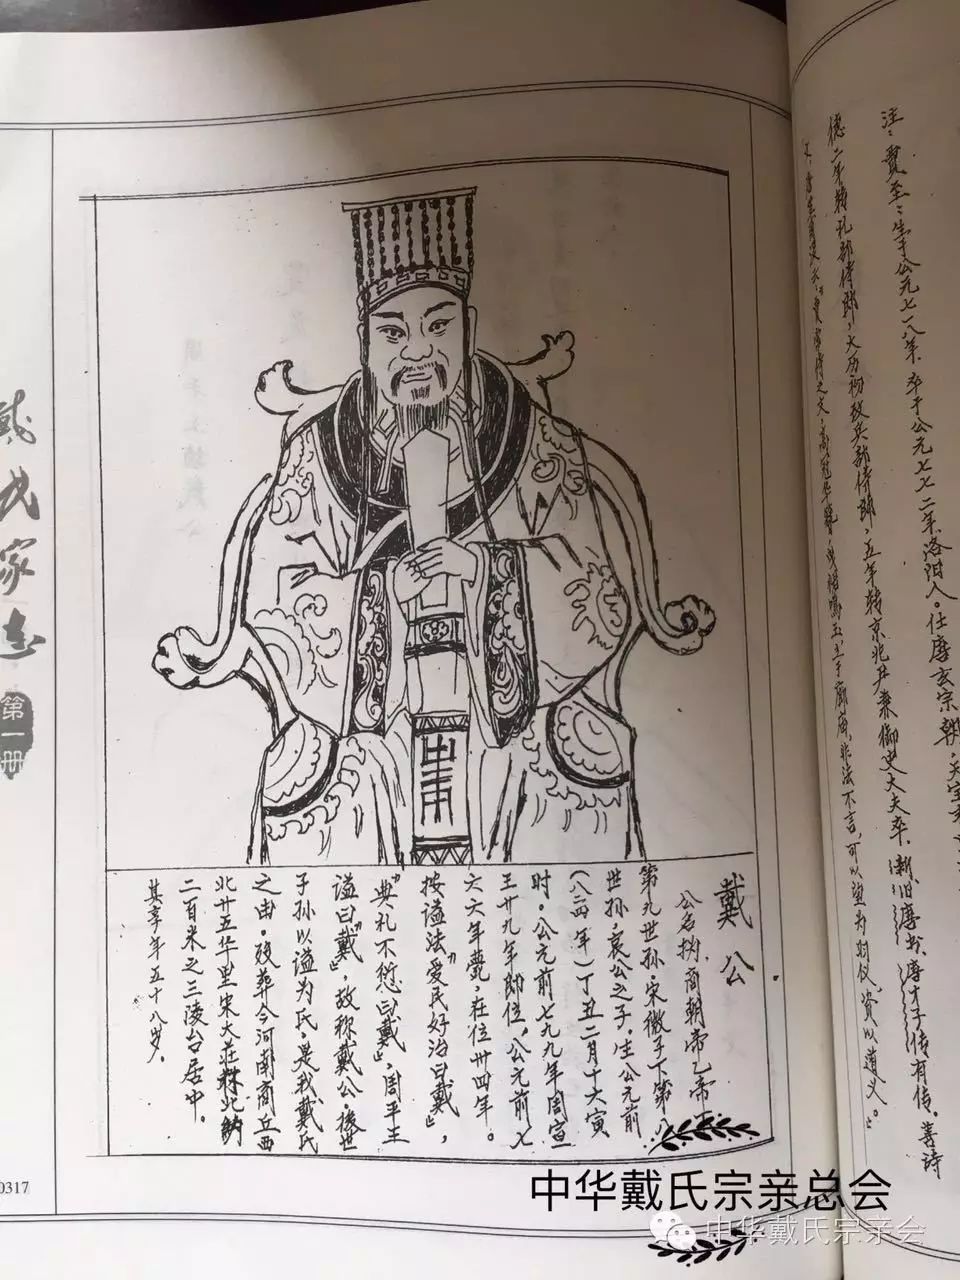 注：贾至：生于公元七一八年．卒于公元七七二年洛阳人。仕唐玄宗朝．天宝
德二年转礼部侍郎，大历初改兵部侍郎，五年转京兆尹兼御史大夫卒，新、旧唐书、唐才子传有传。善诗
常侍之文，高冠华簪，曳裾鸣玉，立于廊庙，非法不言，可以望为羽仪，资以道义。"
戴公
公名㧑，商朝帝乙帝
第九世孙，宋微子下第八
世孙，哀公之子，生公元前
（八二四年）丁丑二月十六寅
时。公元前七九九年周宣
王廿九年即位，公元前七
六六年薨，在位卅四年。
按谥法"爱民好治曰戴"，
"典礼不愆曰戴"，周平王
谥曰"戴"，故称戴公。後世
子孙以谥为氏，是我戴氏
之由。殁葬今河南商丘西
北廿五华里宋大庄林北约
二百米之三陵台居中。
其享年五十八岁。
戴氏家志
第一册
0317
中华戴氏宗亲总会
中华戴氏宗亲会